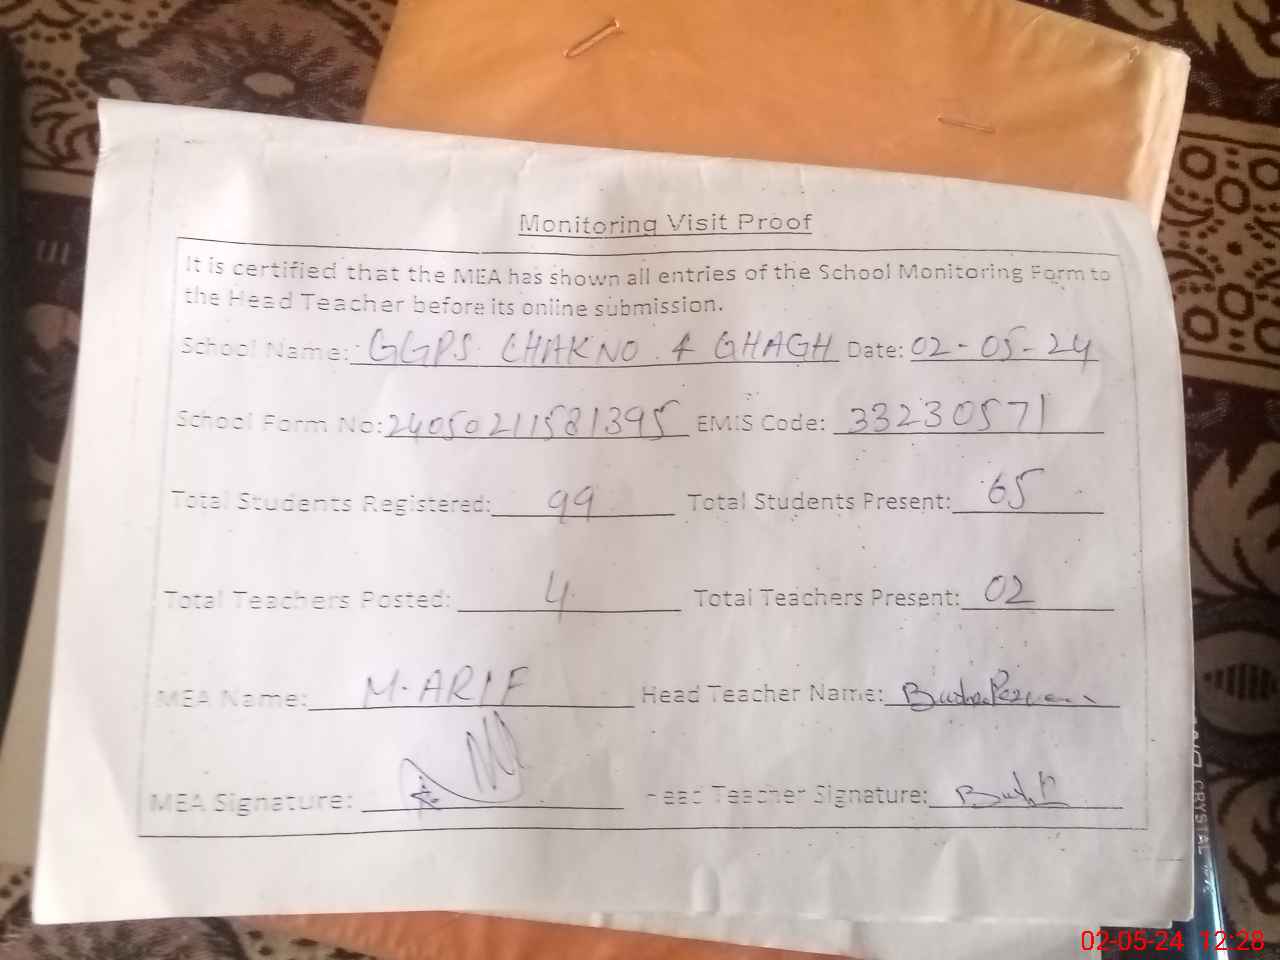 Monitoring Visit Proof
It is certified that the MEA has shown all entries of the School Monitoring Form to
the Head Teacher before its online submission.
School Name: GGPS CHAK NO. 4 GHAGH Date: 02-05-24
School Form No: 24050211581395 EMIS Code: 33230571
Total Students Registered: 99 Total Students Present: 65
Total Teachers Posted: 4 Total Teachers Present: 02
MEA Name: M. ARIF Head Teacher Name: Bushra
MEA Signature: Head Teacher Signature:
CRYSTAL
02-05-24 12:28